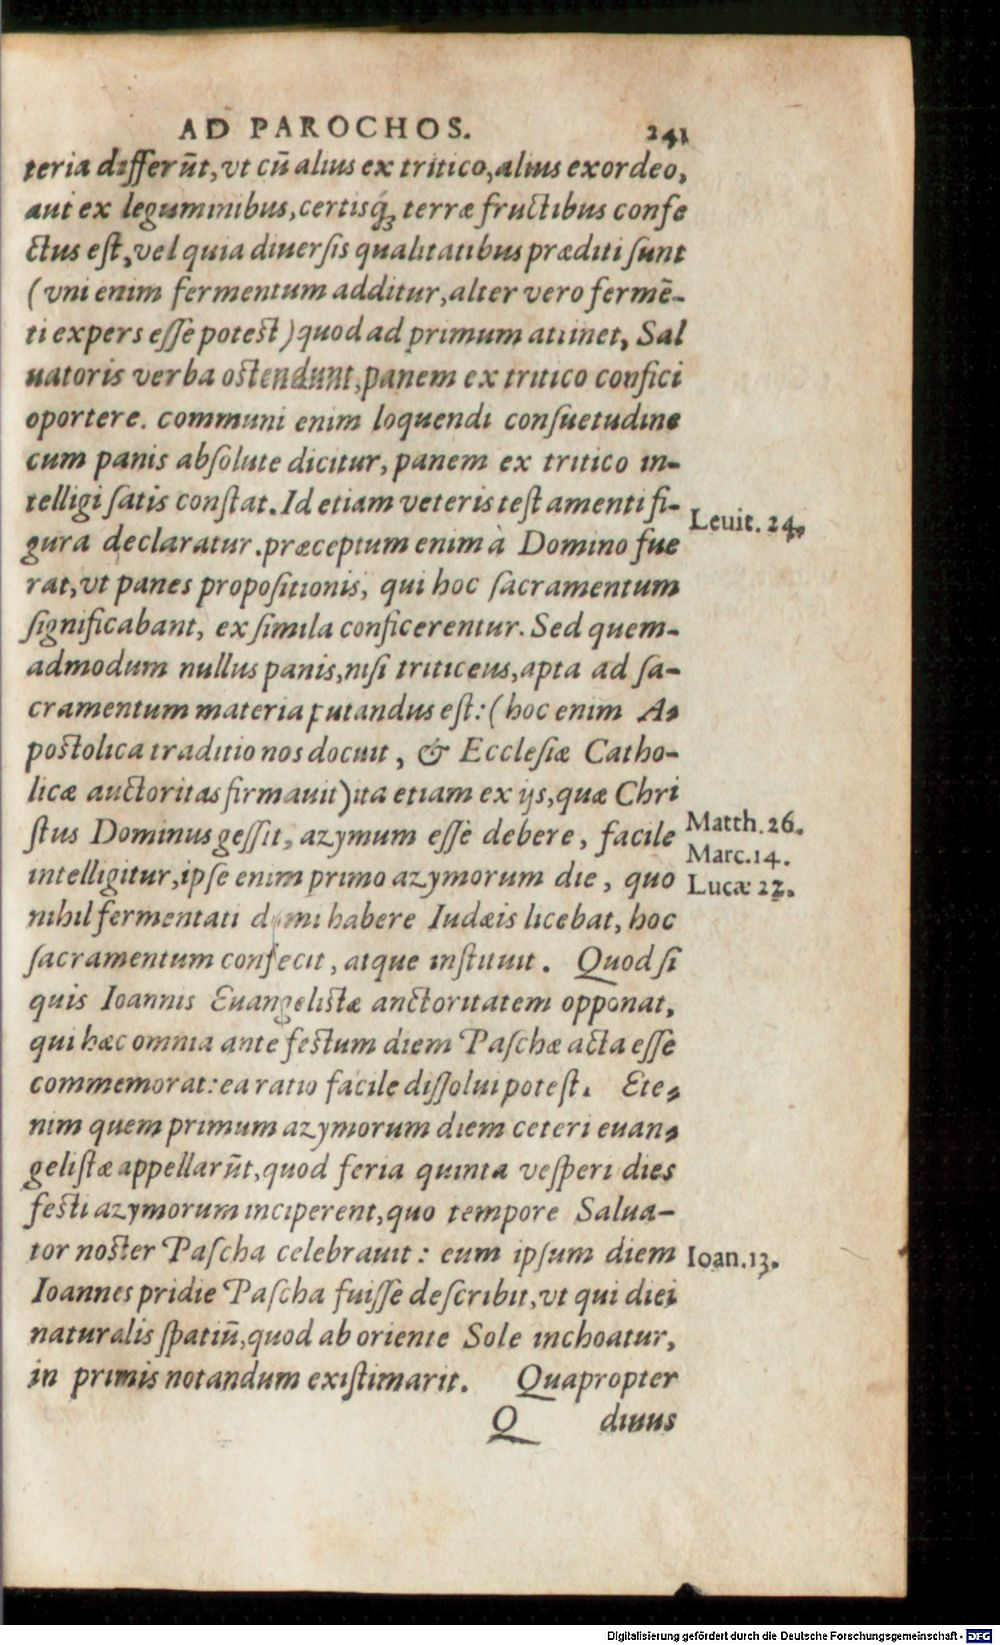 AD PAROCHOS. 241
teria differūt, vt cū alius ex tritico, alius ex ordeo,
aut ex leguminibus, certisq́ꝫ terræ fructibus confe
ctus eſt, vel quia diuerſis qualitatibus præditi ſunt
(vni enim fermentum additur, alter vero fermē-
ti expers eſſe potest) quod ad primum attinet, Sal
uatoris verba ostendunt, panem ex tritico confici
oportere. communi enim loquendi conſuetudine
cum panis abſolute dicitur, panem ex tritico in-
telligi ſatis conſtat. Id etiam veteris teſtamenti fi-
Leuit. 24.
gura declaratur. præceptum enim à Domino fue
rat, vt panes propoſitionis, qui hoc ſacramentum
ſignificabant, ex ſimila conficerentur. Sed quem-
admodum nullus panis, niſi triticeus, apta ad ſa-
cramentum materia putandus eſt: (hoc enim A-
postolica traditio nos docuit, & Eccleſiæ Catho-
licæ auctoritas firmauit) ita etiam ex ijs, quæ Chri
ſtus Dominus geſſit, azymum eſſe debere, facile
Matth. 26.
Marc. 14.
intelligitur, ipſe enim primo azymorum die, quo
Lucæ 22.
nihil fermentati domi habere Iudæis licebat, hoc
ſacramentum confecit, atque inſtituit. Quod ſi
quis Ioannis Euangeliſtæ anctoritatem opponat,
qui hæc omnia ante festum diem Paſchæ acta eſſe
commemorat: ea ratio facile diſſolui poteſt. Ete-
nim quem primum azymorum diem ceteri euan-
geliſtæ appellarūt, quod feria quinta veſperi dies
festi azymorum inciperent, quo tempore Salua-
tor noster Paſcha celebrauit: eum ipſum diem
Ioan. 13.
Ioannes pridie Paſcha fuiſſe deſcribit, vt qui diei
naturalis ſpatiū, quod ab oriente Sole inchoatur,
in primis notandum exiſtimarit. Quapropter
Q diuus
Digitalisierung gefördert durch die Deutsche Forschungsgemeinschaft - DFG